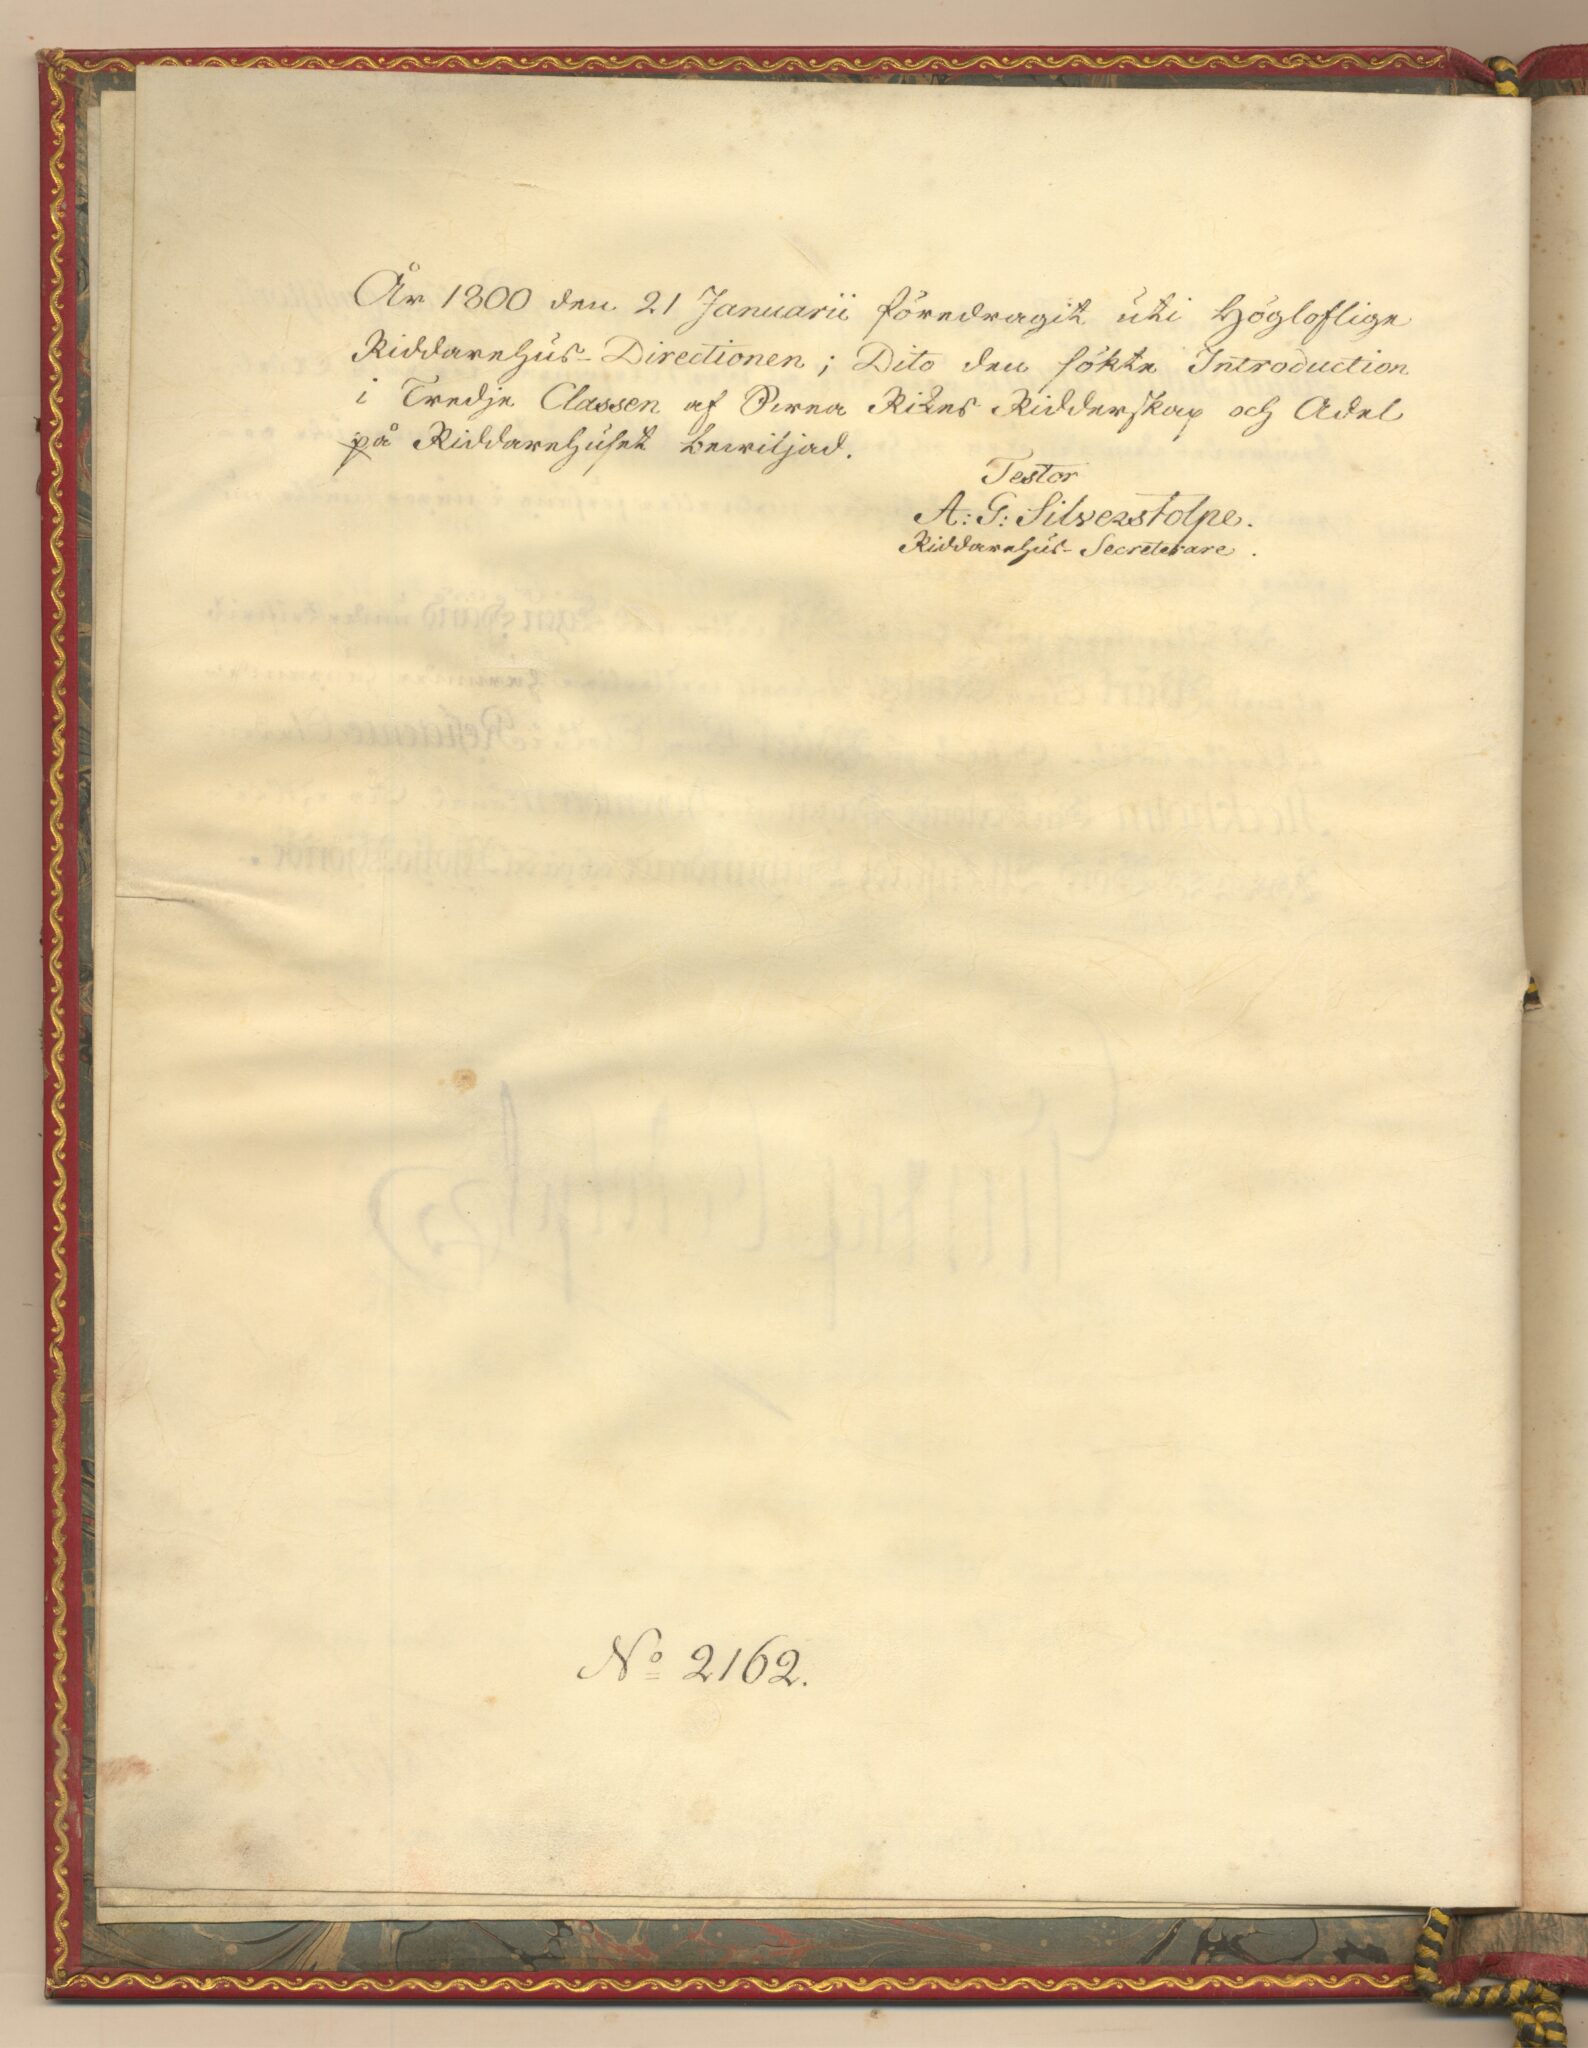 År 1800 den 21 Januarii föredragit uti Högloflige
Riddarehus-Directionen; Dito den sökte Introduction
i Tredje Classen af Svea Rikes Ridderskap och Adel
på Riddarehuset bewiljad.
Testor
A: G: Silverstolpe.
Riddarehus-Secreterare.
No 2162.